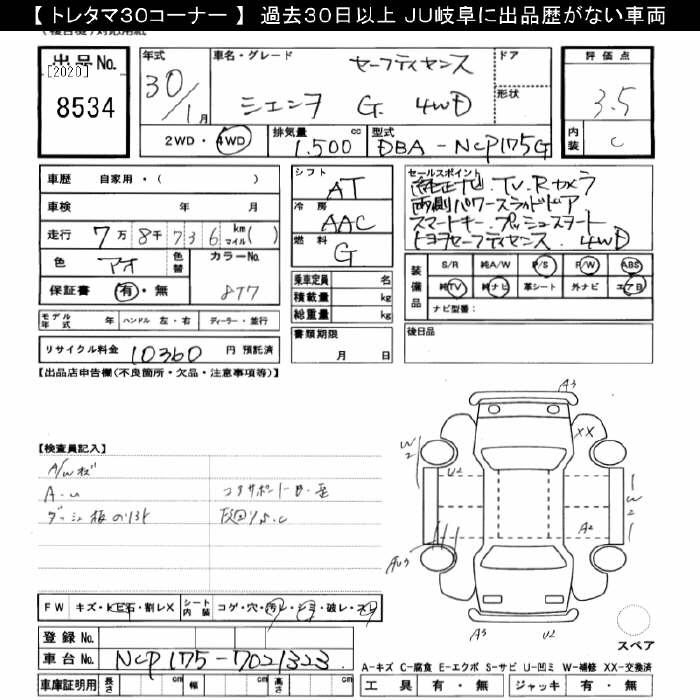 【 トレタマ30コーナー 】 過去30日以上 JU岐阜に出品歴がない車両
出品No.
[2020]
8534
年式
30/1月
車名・グレード
セーフティセンス
シエンタ G 4WD
ドア
形状
評価点
3.5
内装
C
2WD・4WD
排気量
1.500 cc
型式
DBA-NCP175G
車歴 自家用・( )
車検 年 月
走行 7万8千736 km マイル( )
色 アオ
色替
カラーNo.
877
保証書 有・無
モデル年式 年 ハンドル 左・右 ディーラー・並行
リサイクル料金 10360 円 預託済
シフト
AT
冷房
AAC
燃料
G
乗車定員 名
積載量 kg
総重量 kg
書類期限
月 日
セールスポイント
純正ナビ.TV.Rカメラ
両側パワースライドドア
スマートキー.プッシュスタート
トヨタセーフティセンス. 4WD
装備品
S/R 純A/W P/S P/W ABS
純TV 純ナビ 革シート 外ナビ エアB
ナビ型番:
後日品
【出品店申告欄(不良箇所・欠品・注意事項等)】
【検査員記入】
A/Wキズ
コアサポート
A3
XX
W2
U2
1
W
2
1
A2
A3
U2
スペア
FW キズ・ヒビ石・割レX シート内装 コゲ・穴・汚レ・シミ・破レ・スレ
登録No.
車台No. NCP175-7021323
車庫証明用 長さ cm 幅 cm 高さ cm
A-キズ C-腐食 E-エクボ S-サビ U-凹ミ W-補修 XX-交換済
工具 有・無 ジャッキ 有・無